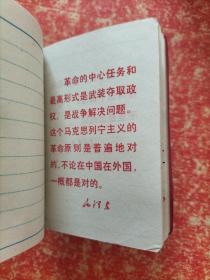 革命的中心任务和
最高形式是武装夺取政
权，是战争解决问题。
这个马克思列宁主义的
革命原则是普遍地对
的，不论在中国在外国，
一概都是对的。
毛泽东